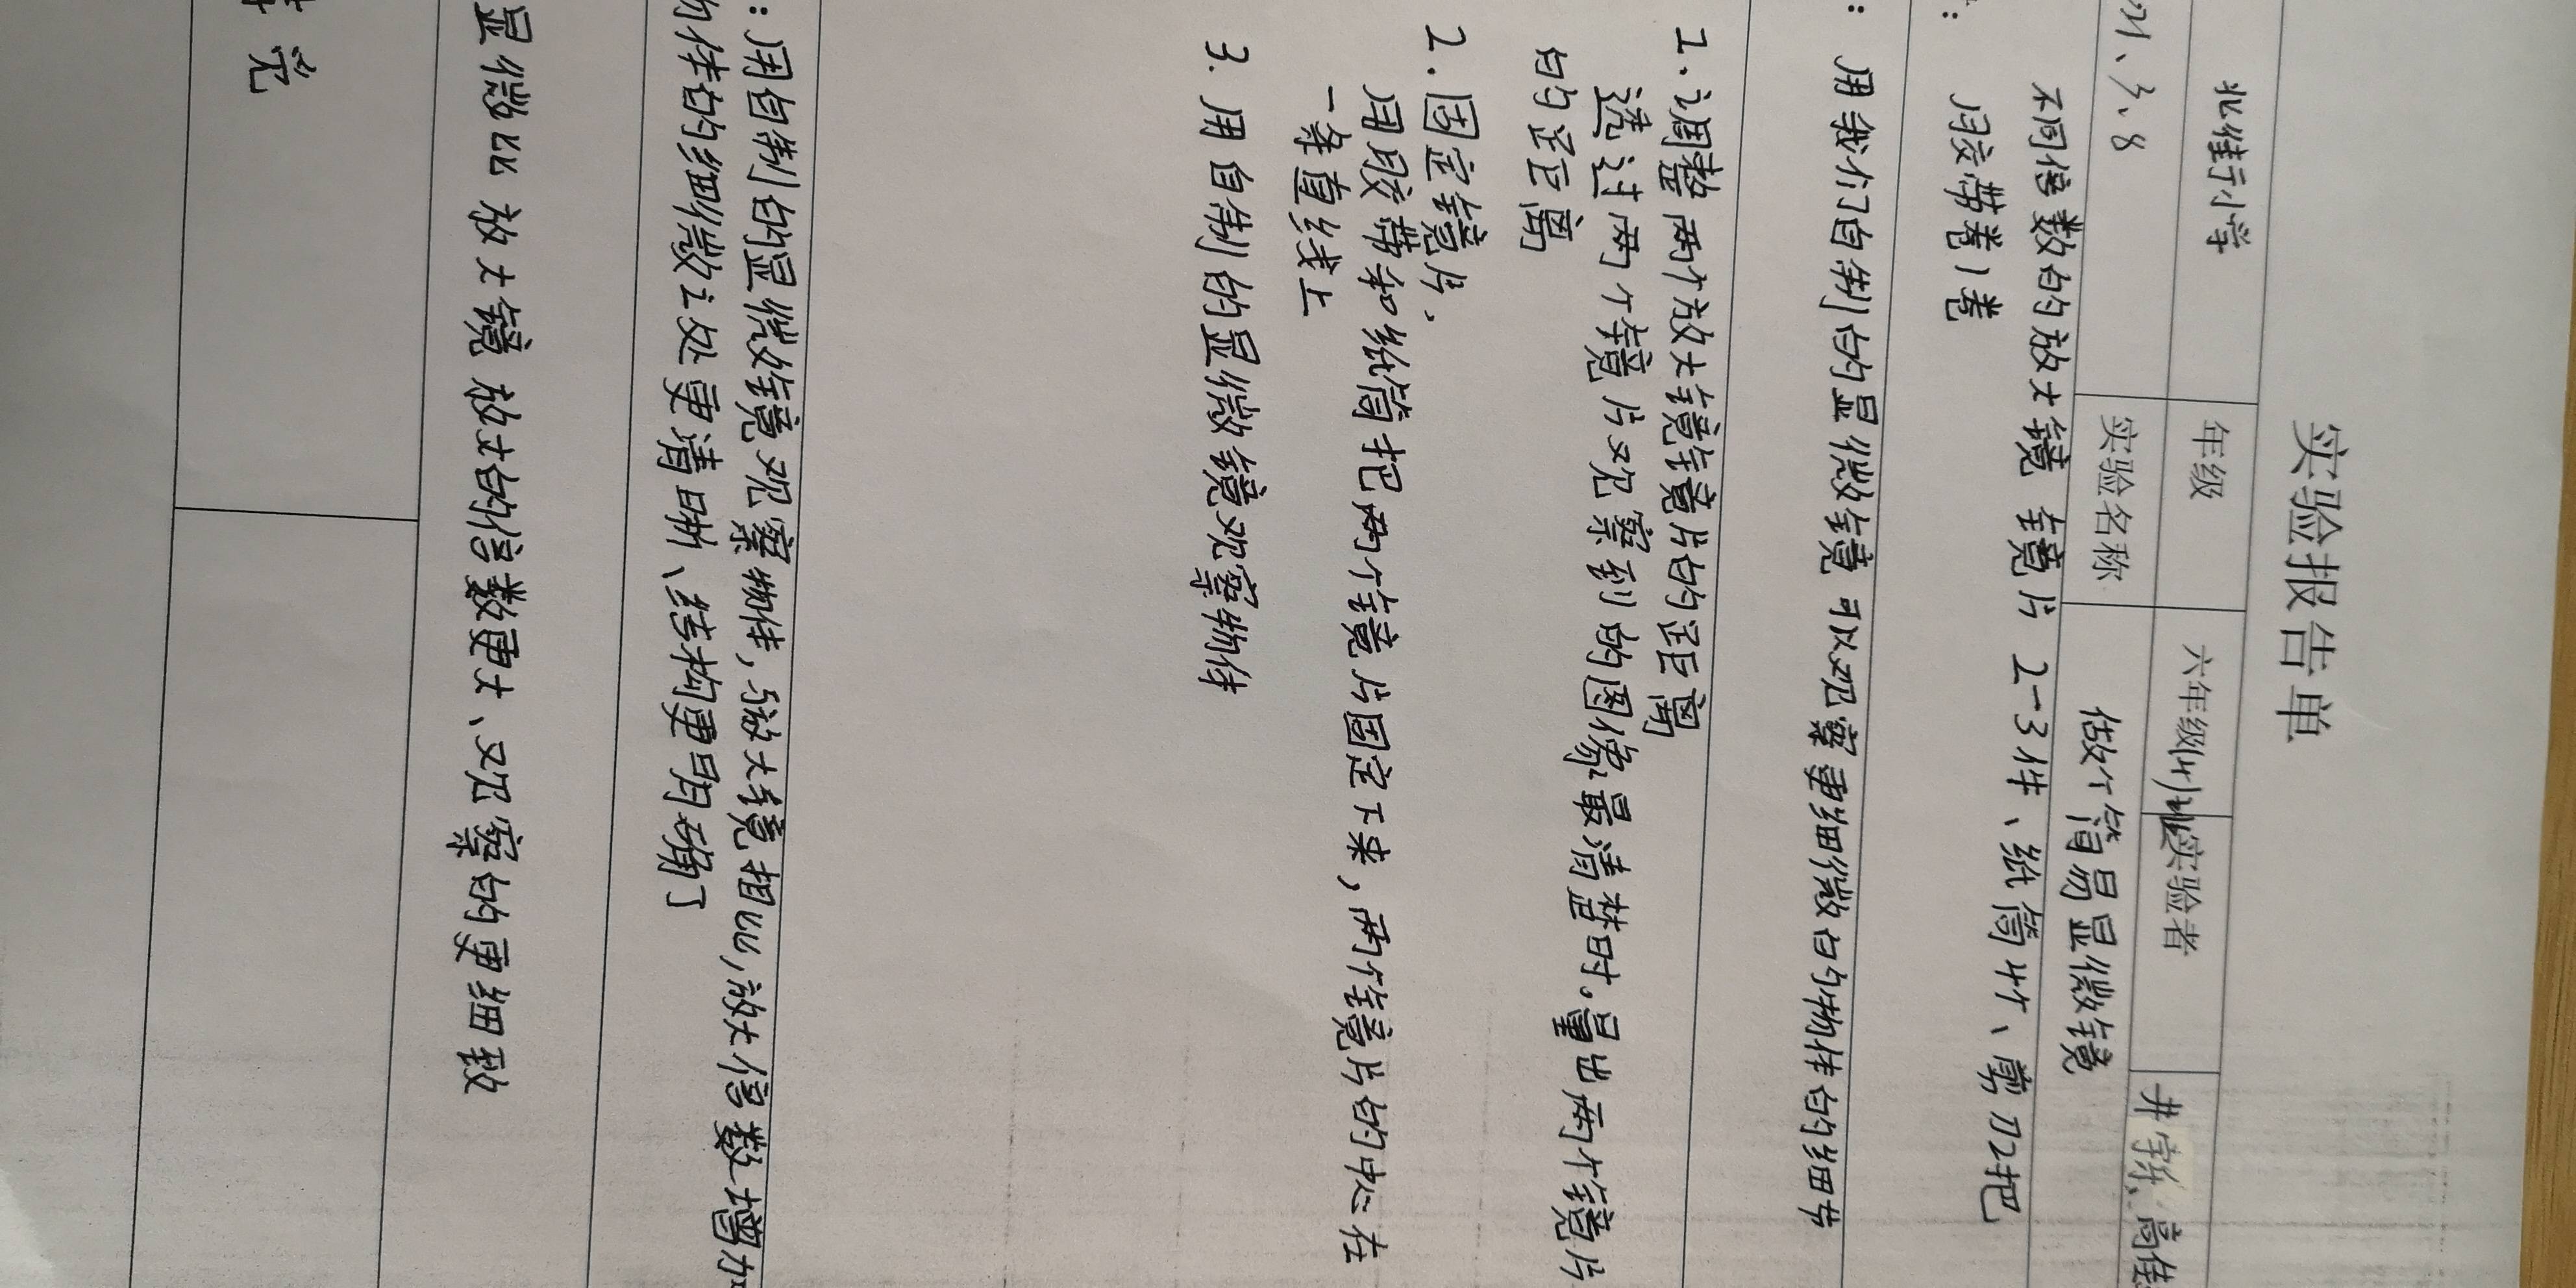 实验报告单
北维行小学 年级 六年级 实验者 井
21、3、8 实验名称 做个简易显微镜
不同倍数的放大镜 镜片 2-3件、纸筒1个、剪刀2把
胶带卷1卷
: 用我们自制的显微镜 可以观察更细微的物体的细节
1.调整两个放大镜镜片的距离
透过两个镜片观察到的图像最清楚时。量出两个镜片
的距离
2.固定镜片,
用胶带和纸筒把两个镜片固定下来,两个镜片的中心在
一条直线上
3.用自制的显微镜观察物体
: 用自制的显微镜观察物体,与放大镜相比,放大倍数增加
物体的细微之处更清晰、结构更明确了
显微比放大镜放大的倍数更大、观察的更细致